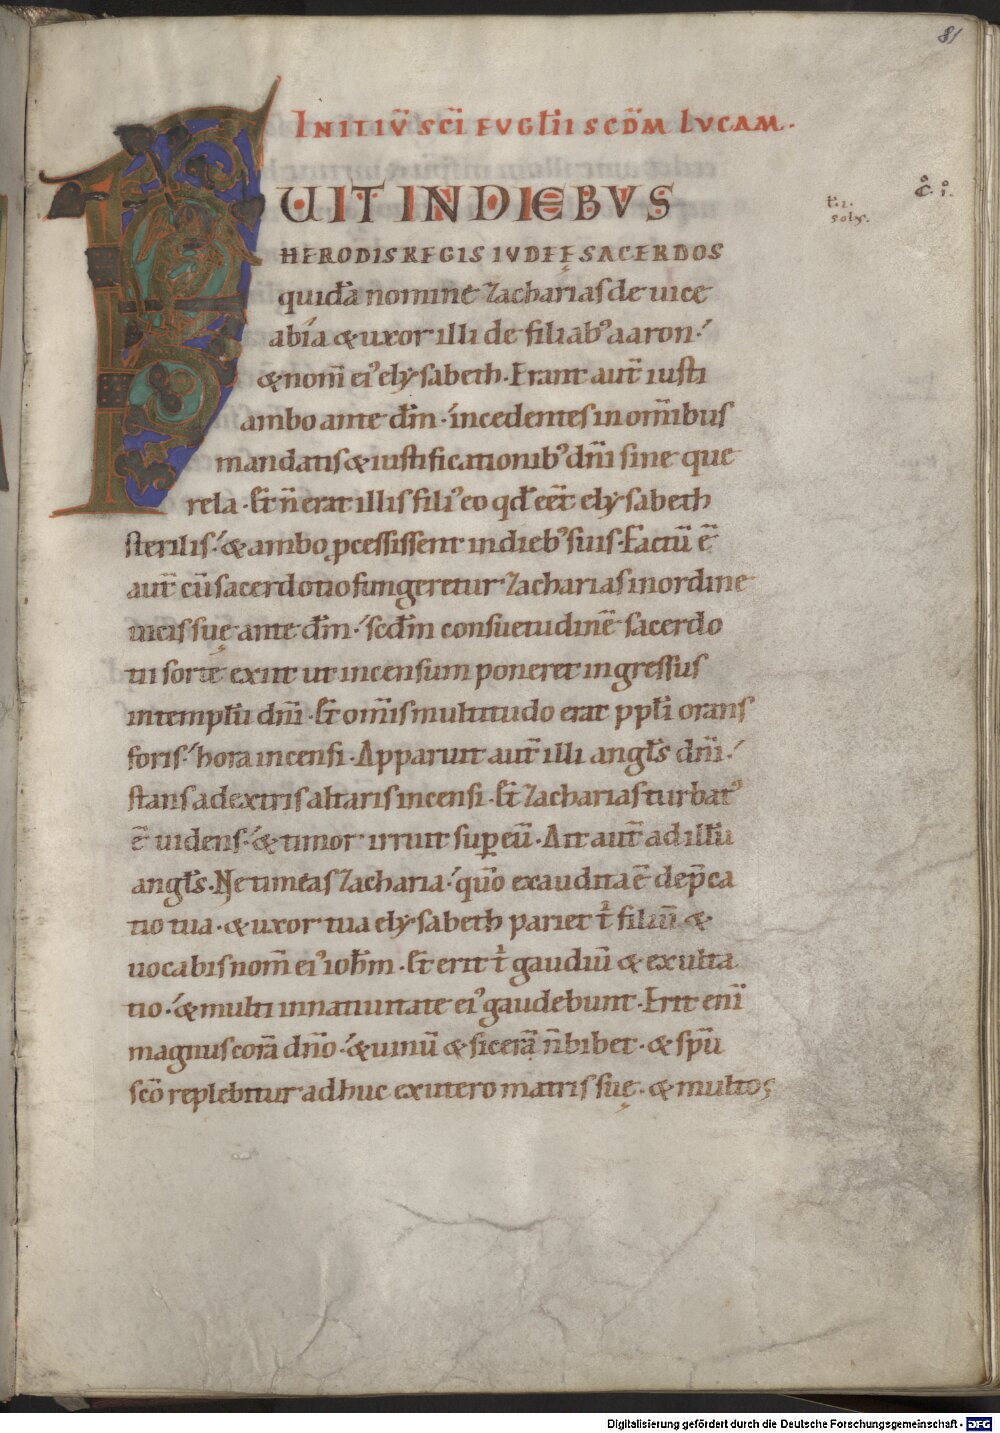 81
INITIŪ SCĪ EUGLII SCDM LUCAM.
FUIT IN DIEBUS
HERODIS REGIS IUDEĘ SACERDOS
quidā nomine Zacharias de uice
abia & uxor illi de filiabꝰ aaron.
& nom̄ eiꝰ elysabeth. Erant aut̄ iusti
ambo ante dm̄. incedentes in om̄ibus
mandatis & iustificationibꝰ dn̄i sine que
rela. Et n̄ erat illis filiꝰ eo qd̄ eēt elysabeth
sterilis. & ambo ꝓcessissent in diebꝰ suis. Factū ē
aut̄ cū sacerdotio fungeretur Zacharias in ordine
uicis suę ante dm̄. scdm̄ consuetudinē sacerdo
tii sorte exiit ut incensum poneret ingressus
in templū dn̄i. Et om̄is multitudo erat ppłi orans
foris. hora incensi. Apparuit aut̄ illi angłs dn̄i.
stans a dextris altaris incensi. Et Zacharias turbatꝰ
ē uidens. & timor irruit suꝑ eū. Ait aut̄ ad illū
angłs. Ne timeas Zacharia. quō exaudita ē dep̄ca
tio tua. & uxor tua elysabeth pariet t̄ filiū &
uocabis nom̄ eiꝰ ioh̄m. Et erit t̄ gaudiū & exulta
tio. & multi in natiuitate eiꝰ gaudebunt. Erit enī
magnus corā dn̄o. & uinū & sicerā n̄ bibet. & spū
scō replebitur adhuc ex utero matris suę. & multos
Digitalisierung gefördert durch die Deutsche Forschungsgemeinschaft - DFG